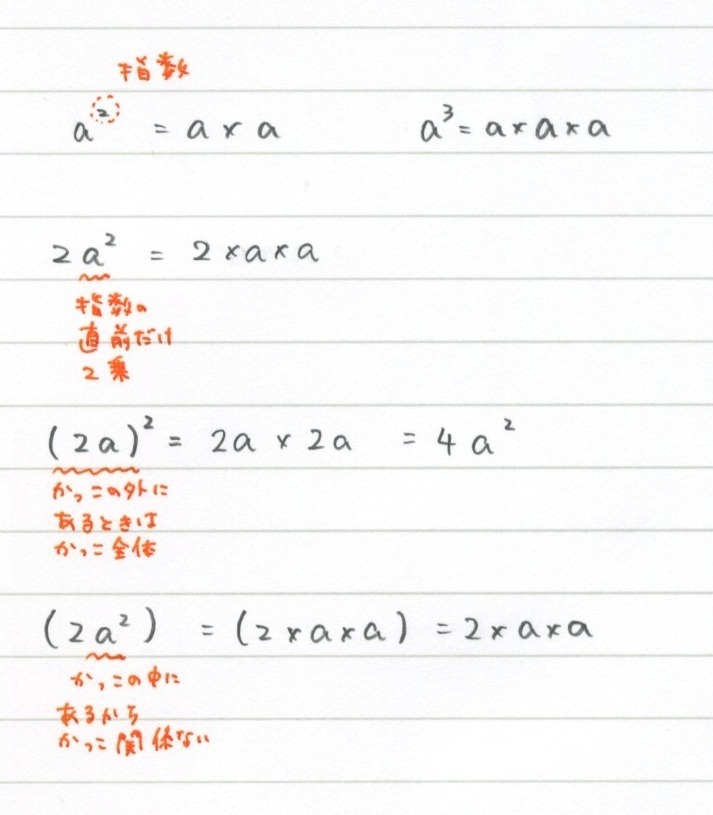 指数
a² = a × a a³ = a × a × a
2a² = 2 × a × a
指数の
直前だけ
2乗
(2a)² = 2a × 2a = 4a²
かっこの外に
あるときは
かっこ全体
(2a²) = (2 × a × a) = 2 × a × a
かっこの中に
あるから
かっこ関係ない